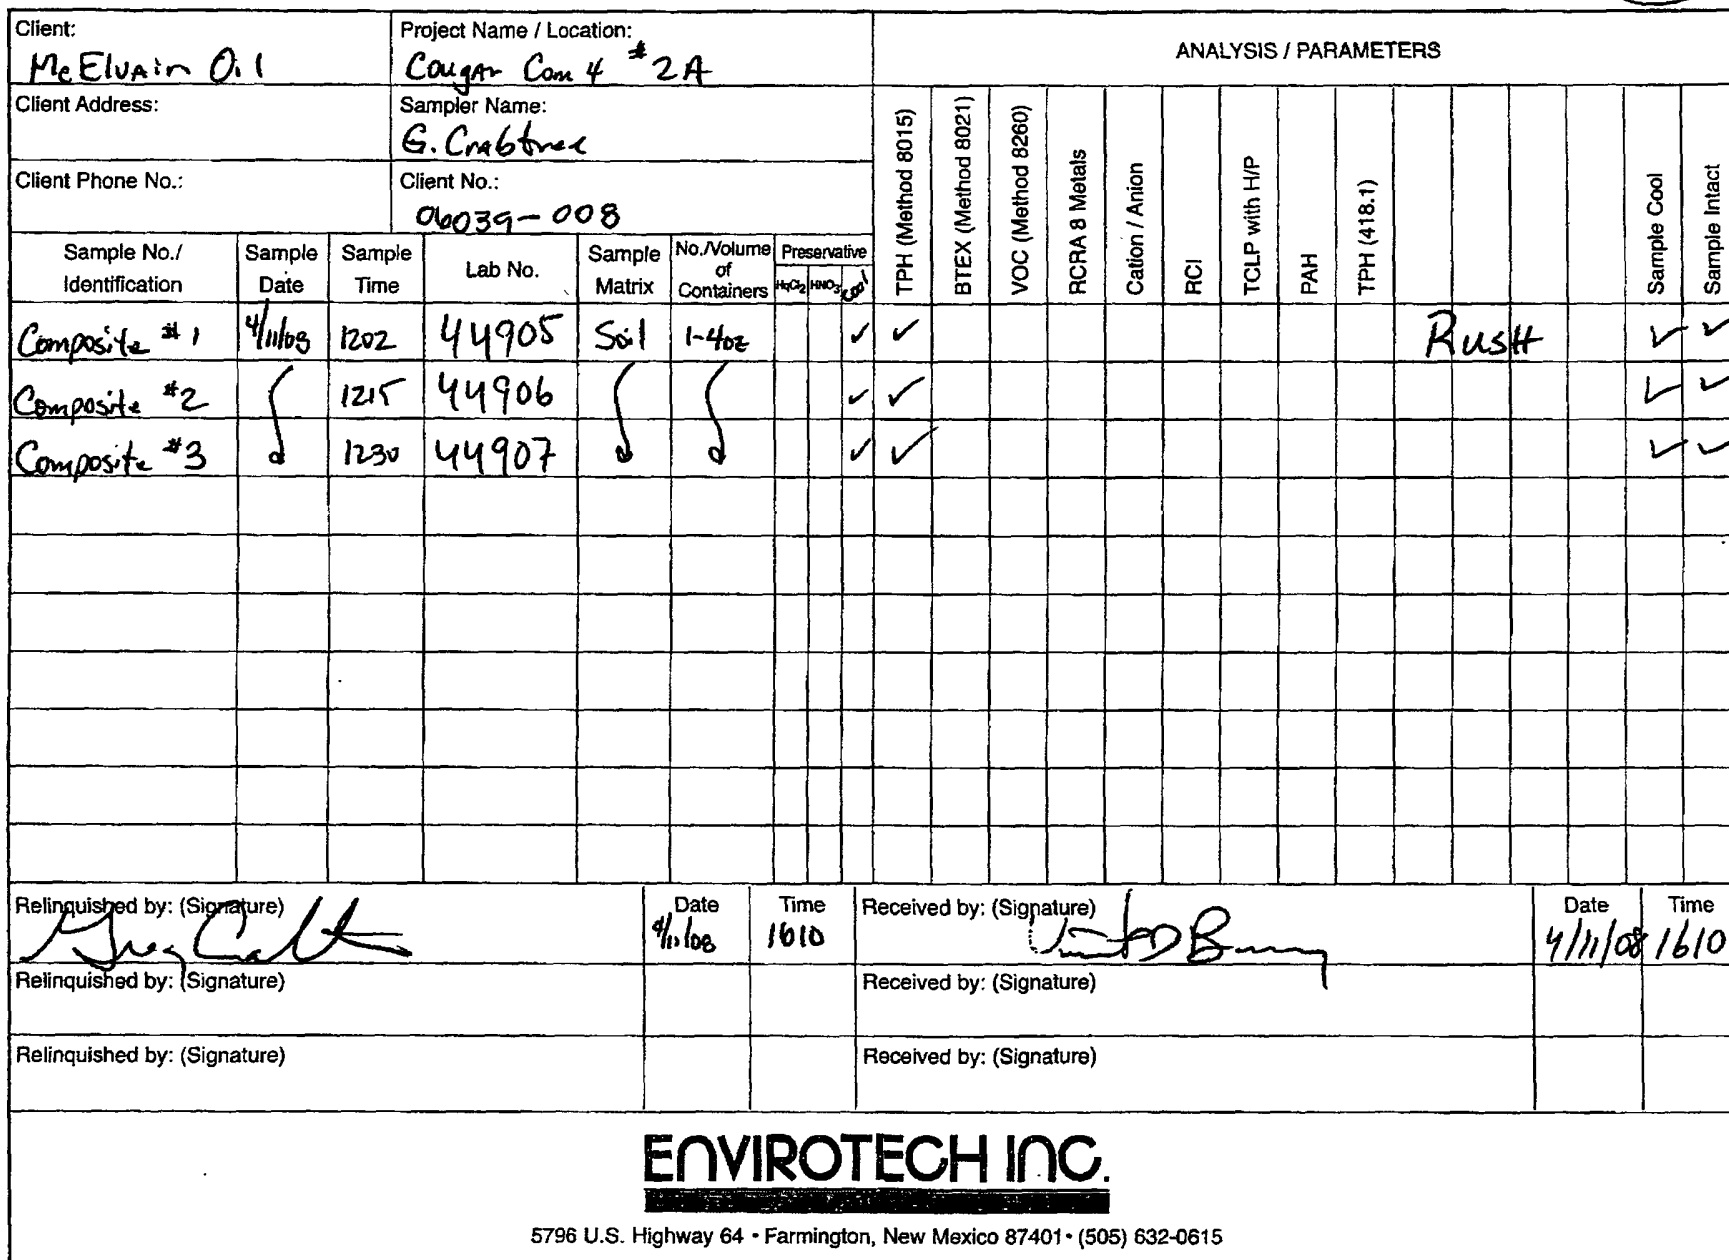 Client: McElvain Oil
Project Name / Location: Cougar Com 4 #2A
ANALYSIS / PARAMETERS
Client Address:
Sampler Name: G. Crabtree
Client Phone No.:
Client No.: 06039-008
Sample No./ Identification
Sample Date
Sample Time
Lab No.
Sample Matrix
No./Volume of Containers
Preservative
HgCl2 HNO3 Cool
TPH (Method 8015)
BTEX (Method 8021)
VOC (Method 8260)
RCRA 8 Metals
Cation / Anion
RCI
TCLP with H/P
PAH
TPH (418.1)
Sample Cool
Sample Intact
Composite #1 4/11/08 1202 44905 Soil 1-4oz ✓ ✓ RUSH ✓ ✓
Composite #2 1215 44906 ✓ ✓ ✓ ✓
Composite #3 1230 44907 ✓ ✓ ✓ ✓
Relinquished by: (Signature) Date 4/11/08 Time 1610
Received by: (Signature) Date 4/11/08 Time 1610
Relinquished by: (Signature)
Received by: (Signature)
Relinquished by: (Signature)
Received by: (Signature)
ENVIROTECH INC.
5796 U.S. Highway 64 • Farmington, New Mexico 87401 • (505) 632-0615